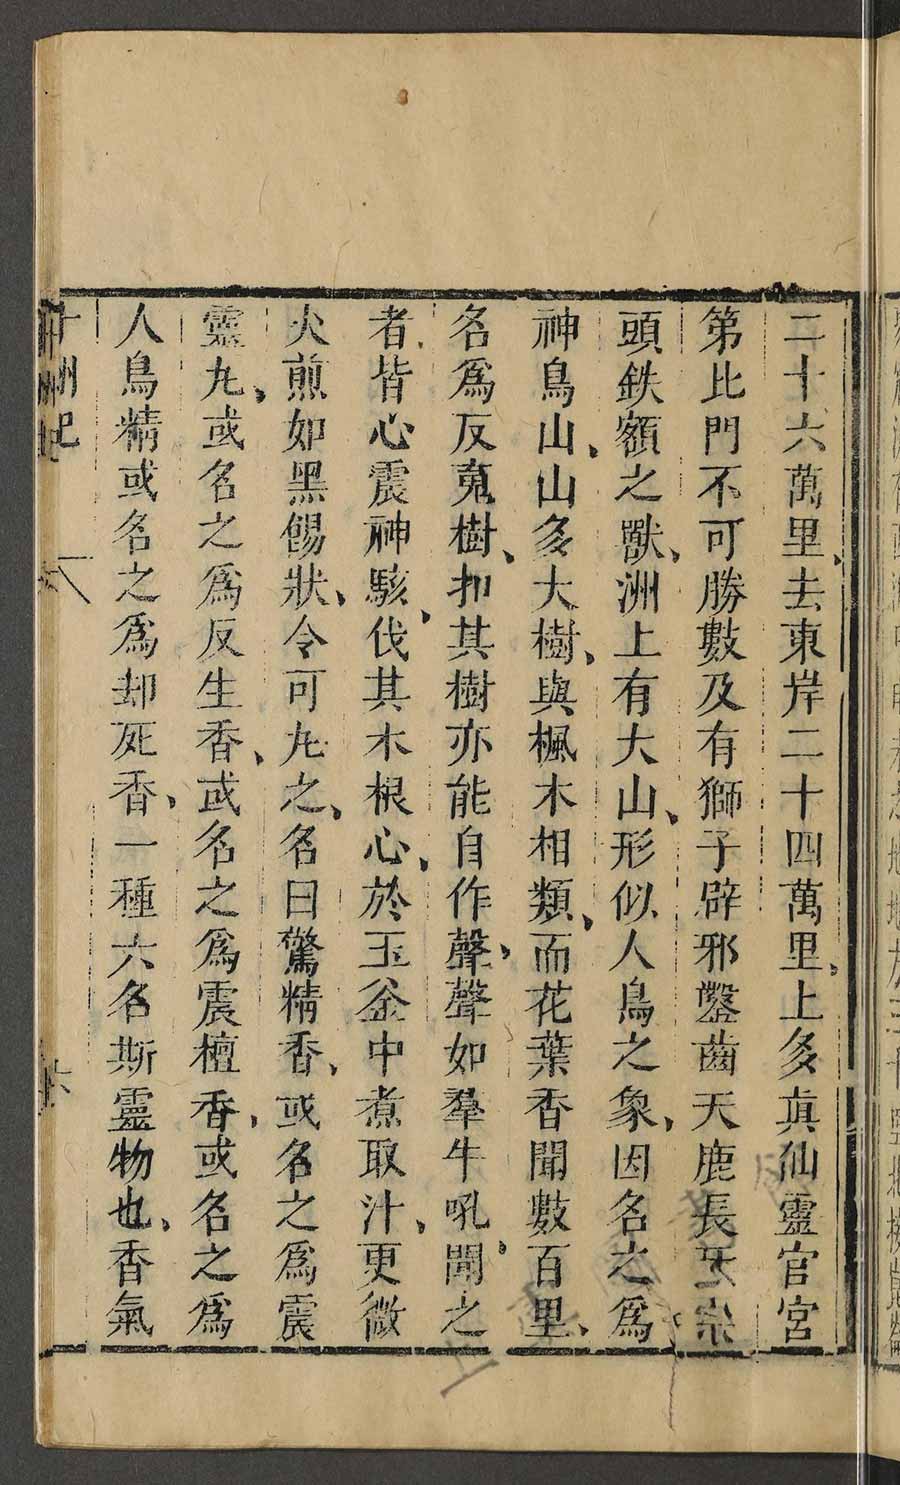 二十六萬里、去東岸二十四萬里、上多真仙靈官宮
第比門不可勝數及有獅子辟邪鑿齒天鹿長牙
頭鉄額之獸、洲上有大山、形似人鳥之象、因名之爲
神鳥山、山多大樹、與楓木相類、而花葉香聞數百里、
名爲反䰟樹、扣其樹亦能自作聲、聲如羣牛吼、聞之
者皆心震神駭、伐其木根心、於玉釜中煮取汁、更微
火煎如黑餳狀、令可丸之、名曰驚精香、或名之爲震
靈丸、或名之爲反生香、或名之爲震檀香、或名之爲
人鳥精或名之爲却死香、一種六名斯靈物也、香氣
十洲記
六